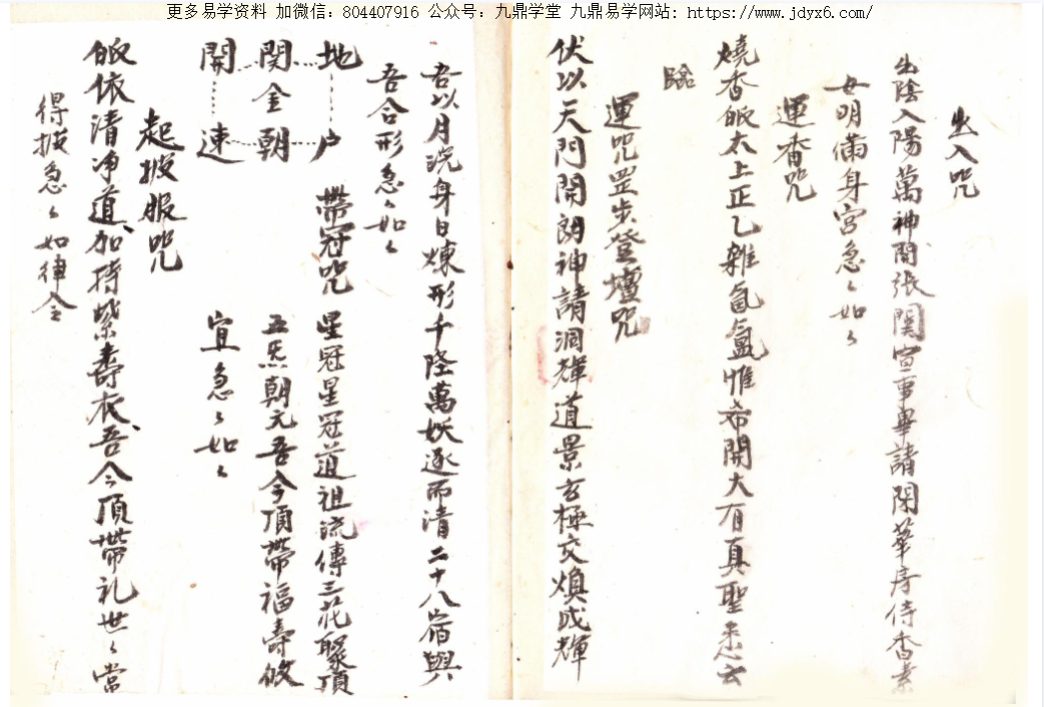 更多易学资料 加微信：804407916 公众号：九鼎学堂 九鼎易学网站：https://www.jdyx6.com/
出入咒
出陰入陽萬神開張関宣事畢請閑華房侍香素
女明備身宮急〻如〻
運香咒
燒香皈太上正乙雜氤氲惟希開大有真聖悉云
臨
運咒罡步登壇咒
伏以天門開朗神請洞輝道景玄極交煥成輝
吾以月浣身日煉形千降萬妖逐而清二十八宿與
吾合形急〻如〻
地户
関金朝
開速
帶冠咒
星冠星冠道祖流傳三花聚頂
五炁朝元吾今頂帶福壽攸
宜急〻如〻
起披服咒
皈依清净道加持紫壽衣吾今頂帶礼世〻當
得披急〻如律令